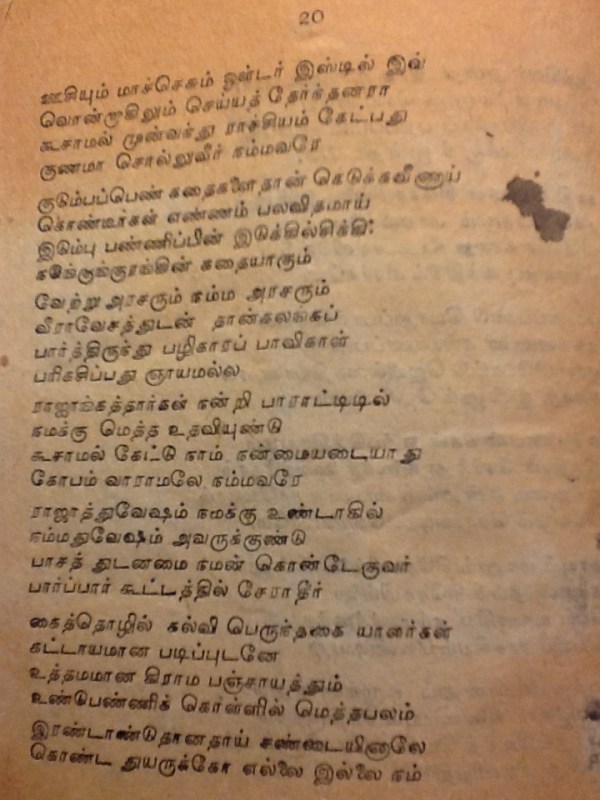 20
ஊசியும் மாச்செசும் ஒன்டர் இஸ்டில் இவ்
வொன்றாகிலும் செய்யத் தேர்ந்தனரா
கூசாமல் முன்வந்து ராச்சியம் கேட்பது
குணமா சொல்லுவீர் நம்மவரே
குடும்பப்பெண் கதைகளைதான் கெடுக்கவீணாய்
கொண்டீர்கள் எண்ணம் பலவிதமாய்
இடும்பு பண்ணிப்பின் இடுக்கில்சிக்கி
குரங்கின் கதையாகும்
வேற்று அரசரும் நம்ம அரசரும்
வீராவேசத்துடன் தான்கலங்கப்
பார்த்திருந்து பழிகாரப் பாவிகாள்
பரிகசிப்பது ஞாயமல்ல
ராஜாங்கத்தார்கள் நன்றி பாராட்டிடில்
நமக்கு மெத்த உதவியுண்டு
கூசாமல் கேட்டு நாம் நன்மையடையாது
கோபம் வாராமலே நம்மவரே
ராஜாத்துவேஷம் நமக்கு உண்டாகில்
நம்மதுவேஷம் அவருக்குண்டு
பாசத் துடனமை நமன் கொண்டேகுவர்
பார்ப்பார் கூட்டத்தில் சேராதீர்
கைத்தொழில் கல்வி பெருந்தகை யாளர்கள்
கட்டாயமான படிப்புடனே
உத்தமமான கிராம பஞ்சாயத்தும்
உண்டுபண்ணிக் கொள்ளில் மெத்தபலம்
இரண்டாண்டுதானதாய் சண்டையினாலே
கொண்ட துயருக்கோ எல்லை இல்லை நம்